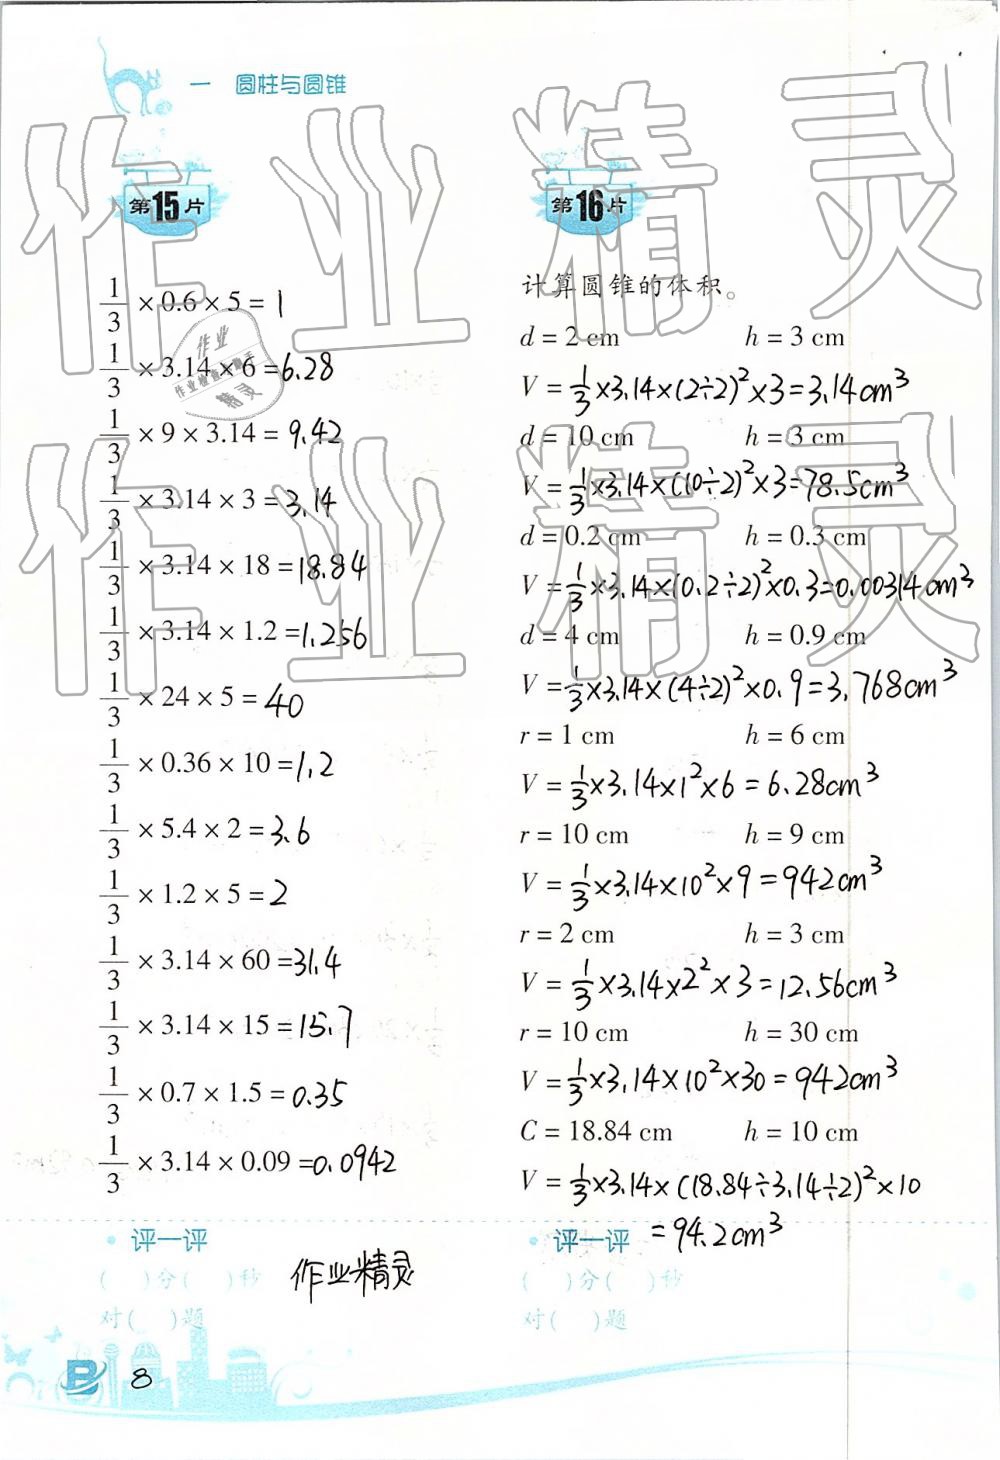 一 圆柱与圆锥
第15片
1/3 × 0.6 × 5 = 1
1/3 × 3.14 × 6 = 6.28
1/3 × 9 × 3.14 = 9.42
1/3 × 3.14 × 3 = 3.14
1/3 × 3.14 × 18 = 18.84
1/3 × 3.14 × 1.2 = 1.256
1/3 × 24 × 5 = 40
1/3 × 0.36 × 10 = 1.2
1/3 × 5.4 × 2 = 3.6
1/3 × 1.2 × 5 = 2
1/3 × 3.14 × 60 = 31.4
1/3 × 3.14 × 15 = 15.7
1/3 × 0.7 × 1.5 = 0.35
1/3 × 3.14 × 0.09 = 0.0942
评一评
( )分( )秒
对( )题
作业精灵
第16片
计算圆锥的体积。
d = 2 cm h = 3 cm
V = 1/3×3.14×(2÷2)²×3=3.14cm³
d = 10 cm h = 3 cm
V = 1/3×3.14×(10÷2)²×3=78.5cm³
d = 0.2 cm h = 0.3 cm
V = 1/3×3.14×(0.2÷2)²×0.3=0.00314cm³
d = 4 cm h = 0.9 cm
V = 1/3×3.14×(4÷2)²×0.9=3.768cm³
r = 1 cm h = 6 cm
V = 1/3×3.14×1²×6=6.28cm³
r = 10 cm h = 9 cm
V = 1/3×3.14×10²×9=942cm³
r = 2 cm h = 3 cm
V = 1/3×3.14×2²×3=12.56cm³
r = 10 cm h = 30 cm
V = 1/3×3.14×10²×30=942cm³
C = 18.84 cm h = 10 cm
V = 1/3×3.14×(18.84÷3.14÷2)²×10
=94.2cm³
评一评
( )分( )秒
对( )题
8
作业精灵
作业精灵
作业
精灵